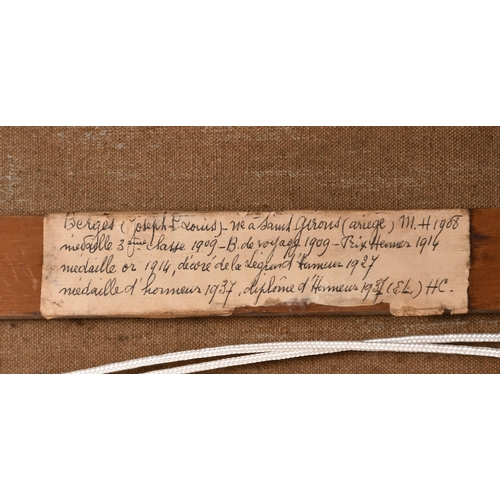 Bergès (Joseph Fs Louis) - né à Saint Girons (ariege) M.H 1908
médaille 3ème classe 1909 - B. de voyage 1909 - Prix Henner 1914
médaille or 1914, décoré de la Légion d'honneur 1927
médaille d'honneur 1937, diplôme d'Honneur 1937 (EL.) HC.